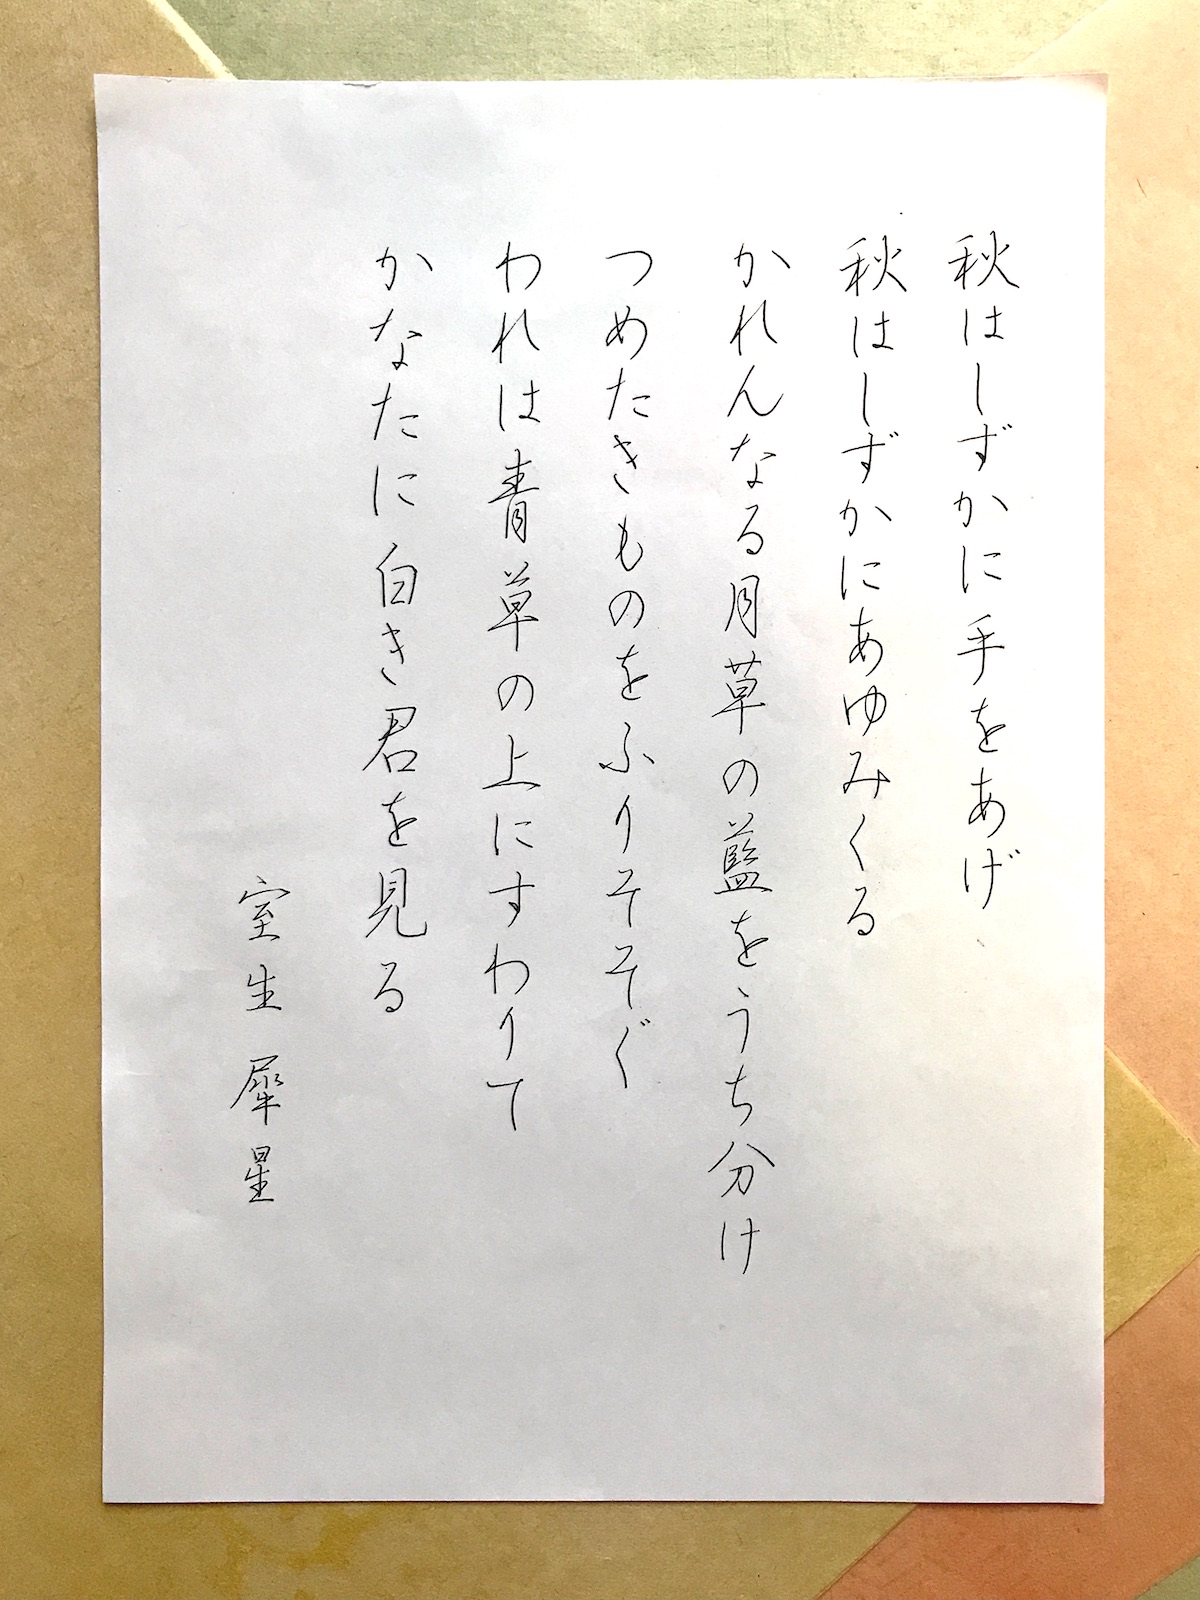 秋はしずかに手をあげ
秋はしずかにあゆみくる
かれんなる月草の藍をうち分け
つめたきものをふりそそぐ
われは青草の上にすわりて
かなたに白き君を見る
室生 犀星